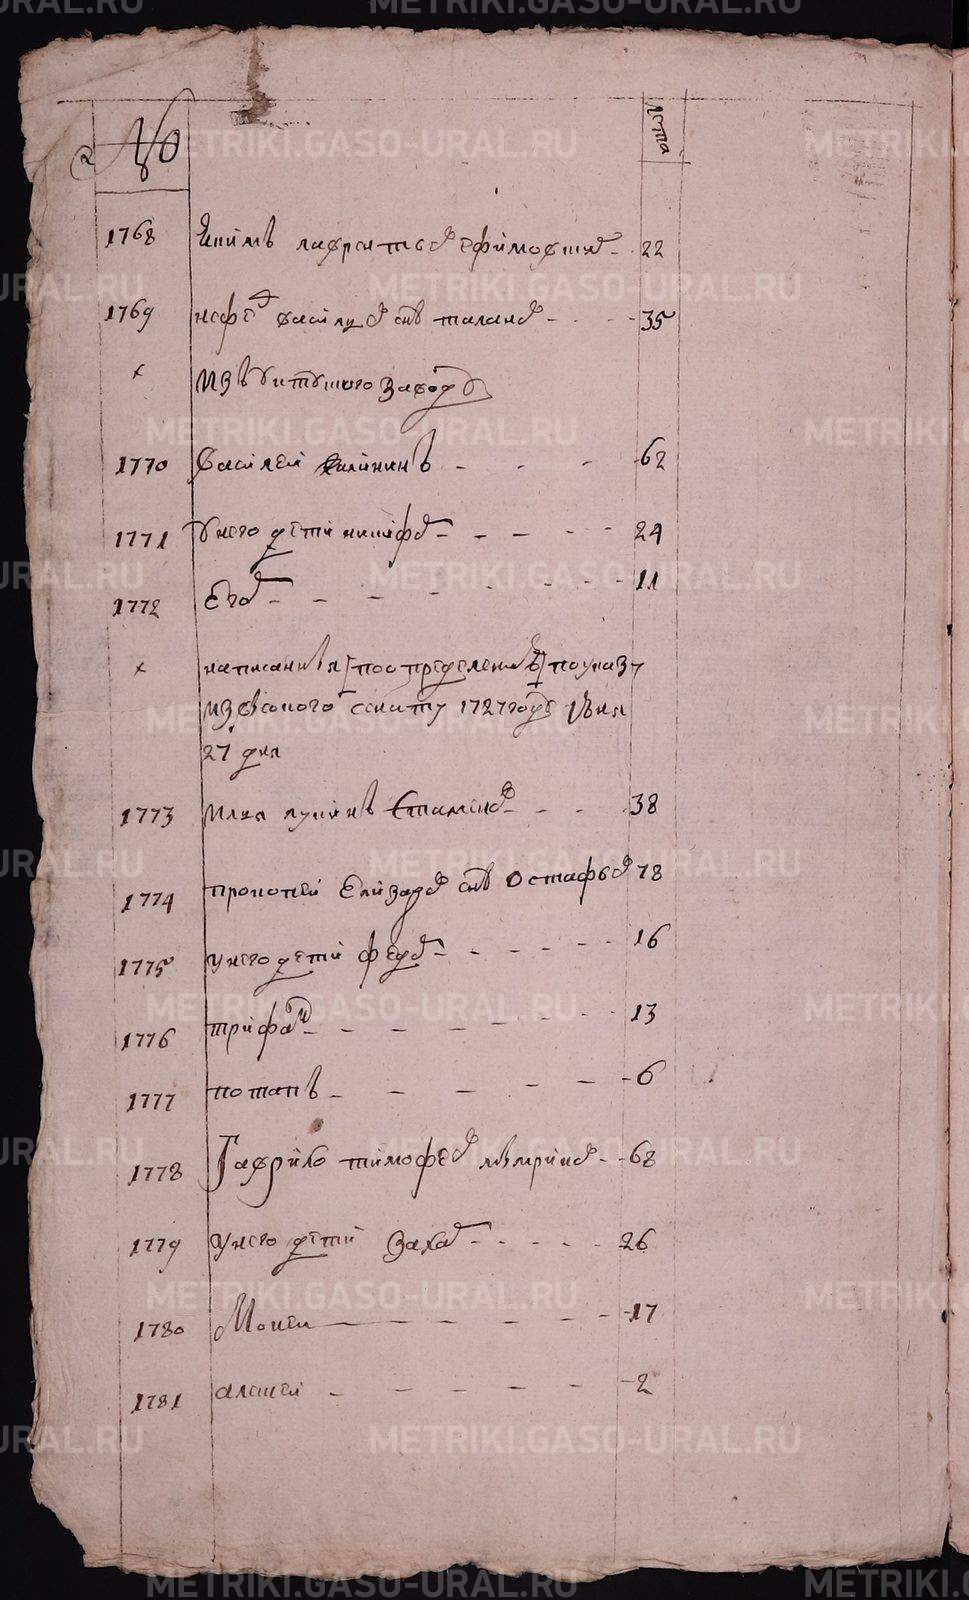 № лета
1768 Екимъ лаврентьев ефимовских 22
1769 нефед василъев снъ талано 35
× из уткинского заводу
1770 василей калининъ 62
1771 у него дети никифор 24
1772 Егор 11
× написанныя по определению по указу
из высокого сенату 1727 году июня
27 дня
1773 илья лукинъ 38
1774 прокопей Елизарьев снъ Остафьев 78
1775 у него дети федор 16
1776 трифан 13
1777 потапъ 6
1778 Гаврило тимофеев 68
1779 у него дети Захар 26
1780 Мокей 17
1781 алексей 2
METRIKI.GASO-URAL.RU